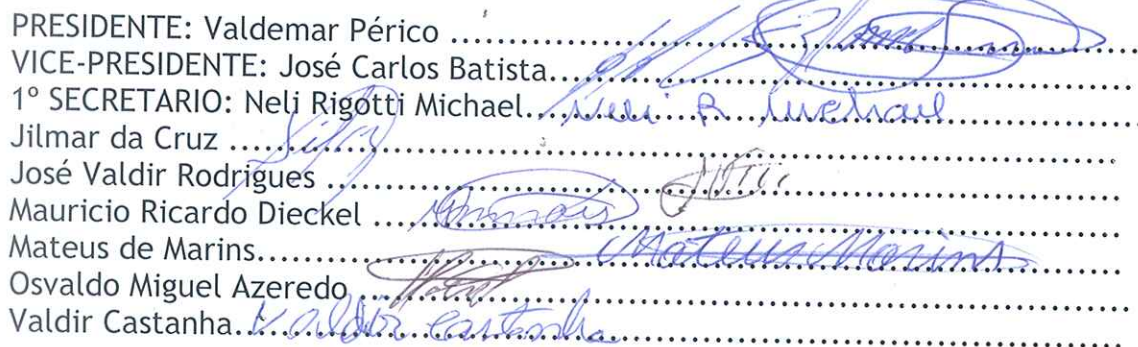 PRESIDENTE: Valdemar Périco ........................................
VICE-PRESIDENTE: José Carlos Batista........................................
1º SECRETARIO: Neli Rigotti Michael........ Neli R Michael
Jilmar da Cruz ........................................
José Valdir Rodrigues ........................................
Mauricio Ricardo Dieckel ........................................
Mateus de Marins........................................ Mateus Marins
Osvaldo Miguel Azeredo ........................................
Valdir Castanha........ Valdir Castanha